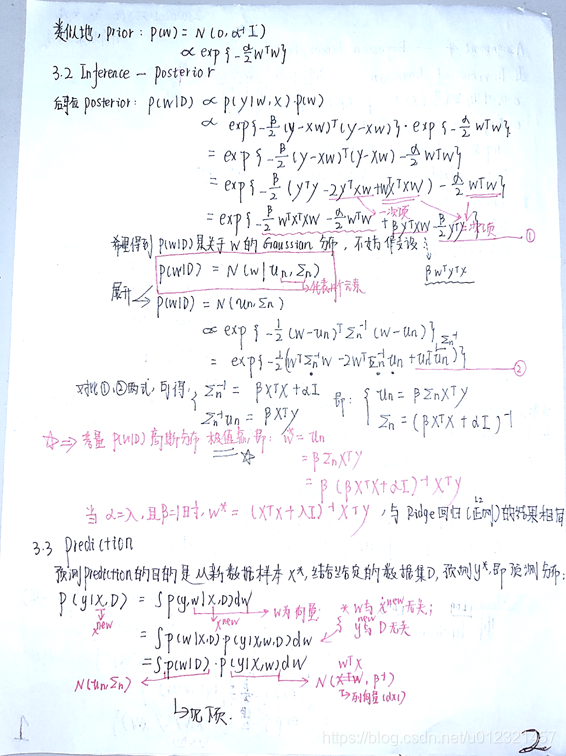 类似地, prior: p(w) = N(0, α⁻¹I)
∝ exp{-α/2 wᵀw}
3.2 Inference - posterior
后验 posterior: p(w|D) ∝ p(y|w,X)·p(w)
∝ exp{-β/2 (y-Xw)ᵀ(y-Xw)}·exp{-α/2 wᵀw}
= exp{-β/2 (y-Xw)ᵀ(y-Xw) - α/2 wᵀw}
= exp{-β/2 (yᵀy - 2yᵀXw + wᵀXᵀXw) - α/2 wᵀw}
一次项
= exp{-β/2 wᵀXᵀXw - α/2 wᵀw + βyᵀXw - β/2 yᵀy} 二次项
①
希望得到 p(w|D) 是关于 w 的 Gaussian 分布, 不妨假设:
βwᵀXᵀy
p(w|D) = N(w|un, Σn)
代表n个元素
展开 p(w|D) = N(un, Σn)
∝ exp{-1/2 (w-un)ᵀ Σn⁻¹ (w-un)}
Σn⁻¹
= exp{-1/2 (wᵀΣn⁻¹w - 2wᵀΣn⁻¹un + unᵀun)} ②
对比①、②两式, 可得, { Σn⁻¹ = βXᵀX + αI 即: { un = βΣnXᵀy
Σn⁻¹un = βXᵀy Σn = (βXᵀX + αI)⁻¹
☆⇒ 考量 p(w|D) 高斯分布 极值点, 即: w* = un
= βΣnXᵀy
= β(βXᵀX + αI)⁻¹Xᵀy
当 α=λ, 且β=1时, w* = (XᵀX + λI)⁻¹Xᵀy, 与 Ridge 回归 (L2正则) 的结果相同
3.3 Prediction
预测 prediction 的目的是从新数据样本 X*, 结合给定的数据集D, 预测 y*, 即预测分布:
p(y|X,D) = ∫p(y,w|X,D)dw
xnew xnew w为向量: * w与 xnew 无关;
= ∫p(w|X,D) p(y|X,w,D)dw ynew 与 D 无关
= ∫p(w|D)·p(y|X,w)dw
wᵀX
N(un, Σn) N(Xᵀw, β⁻¹)
列向量(d×1)
见下页.
1 2